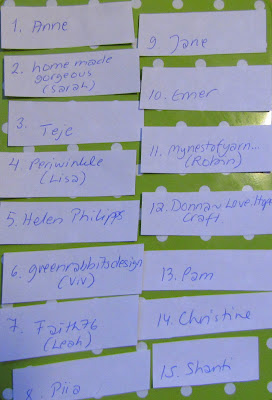 1. Anne
2. home made
gorgeous
(Sarah)
3.
Teje
4. Periwinkle
(Lisa)
5. Helen Philipps
6. greenrabbitsdesign
(Viv)
7. Faith76
(Leah)
8. Piia
9. Jane
10. Emer
11. mynestofyarn...
(Robin)
12. Donna~Love.Hope
Craft.
13. Pam
14. Christine
15. Shanti